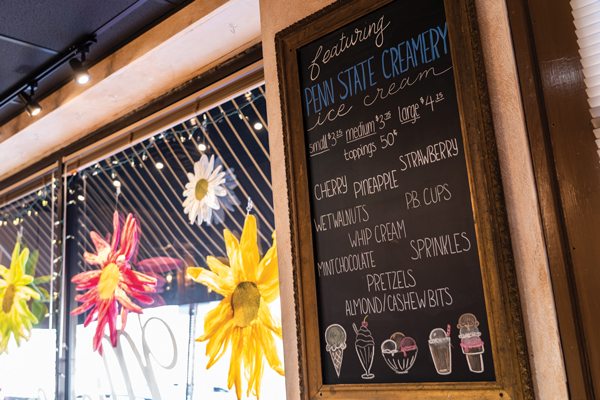 featuring
PENN STATE CREAMERY
ice cream
small $3.25 medium $3.75 large $4.25
toppings 50¢
CHERRY PINEAPPLE STRAWBERRY
WET WALNUTS PB CUPS
WHIP CREAM
MINT CHOCOLATE SPRINKLES
PRETZELS
ALMOND/CASHEW BITS